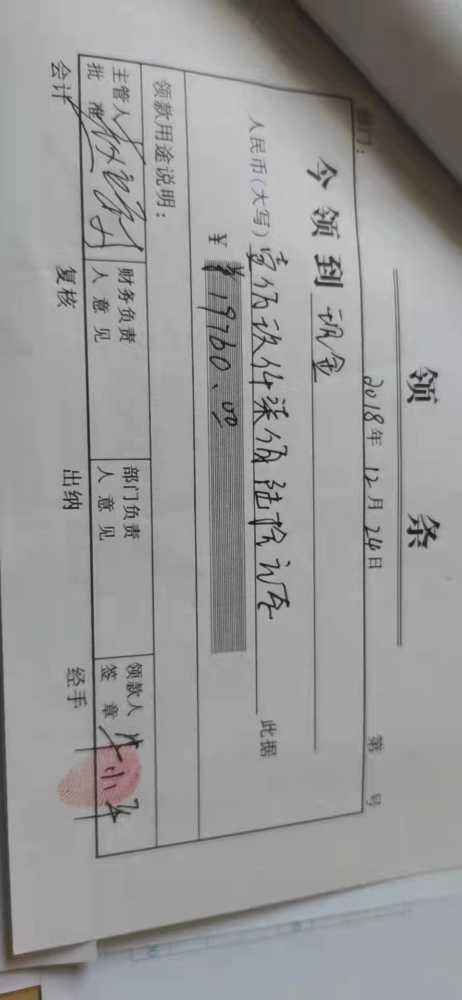 领 条
部门：
2018年 12月 24日 第 号
今领到 现金
人民币(大写) 壹佰玖仟柒佰陆拾元正 此据
¥ ¥ 19760.00
领款用途说明：
主管人 批准
财务负责人意见
部门负责人意见
领款人签章
会计 复核 出纳 经手